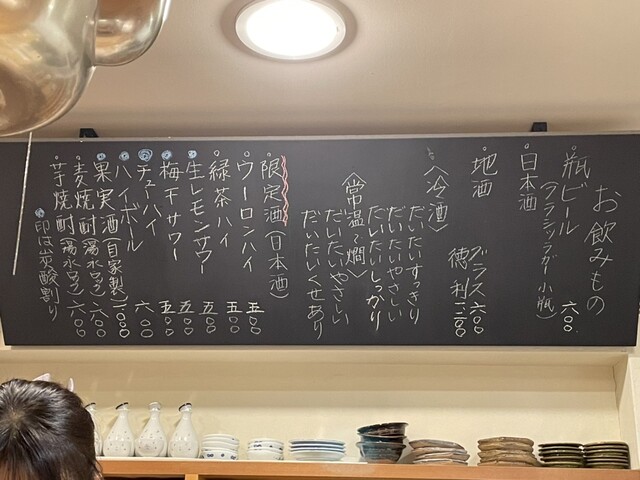 お飲みもの
瓶ビール 六〇〇
(クラシックラガー小瓶)
日本酒
地酒 グラス 六〇〇
徳利 一二〇〇
〈冷酒〉
だいたいすっきり
だいたいやさしい
だいたいしっかり
〈常温〜燗〉
だいたいやさしい
だいたいくせあり
限定酒(日本酒)
ウーロンハイ 五〇〇
緑茶ハイ 五〇〇
生レモンサワー 五〇〇
梅干サワー 五〇〇
チューハイ 六〇〇
ハイボール
果実酒(自家製) 一〇〇〇
麦焼酎(湯水ロック) 六〇〇
芋焼酎(湯水ロック) 六〇〇
印は炭酸割り